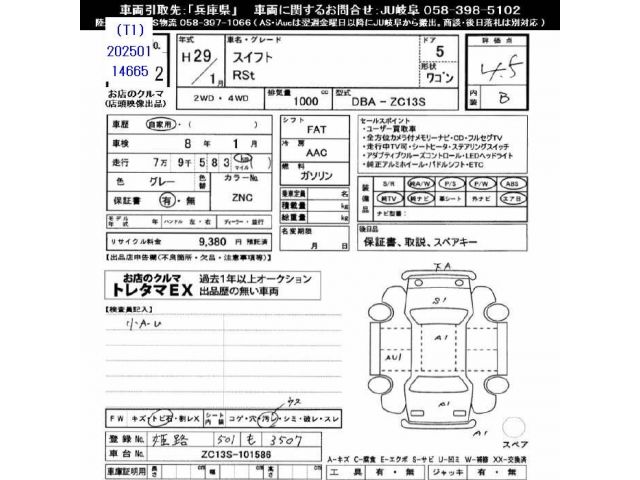 車両引取先:「兵庫県」 車両に関するお問合せ:JU岐阜 058-398-5102
陸 S物流 058-397-1066 (AS・iAucは翌週金曜日以降にJU岐阜から搬出。商談・後日落札は別対応)
(T1)
202501
14665
o.
2
お店のクルマ
(店頭映像出品)
年式 H29年 1月
車名・グレード スイフト RSt
ドア 5
形状 ワゴン
評価点 4.5
内装 B
2WD・4WD
排気量 1000 cc
型式 DBA - ZC13S
車歴 自家用・( )
車検 8年 1月
走行 7万 9千 5 8 3 km マイル
色 グレー
色替
カラーNo. ZNC
保証書 有・無
モデル年式 年
ハンドル 左・右
ディーラー・並行
リサイクル料金 9,380 円 預託済
シフト FAT
冷房 AAC
燃料 ガソリン
乗車定員 名
積載量 kg
総重量 kg
名変期限 月 日
セールスポイント
・ユーザー買取車
・全方位カメラ付メモリーナビ・CD・フルセグTV
・走行中TV可・シートヒータ・ステアリングスイッチ
・アダプティブクルーズコントロール・LEDヘッドライト
・純正アルミホイール・パドルシフト・ETC
装備品 S/R 純A/W P/S P/W ABS
純TV 純ナビ 革シート 外ナビ エア日
ナビ型番:
後日品
保証書、取説、スペアキー
【出品店申告欄(不良箇所・欠品・注意事項等)】
お店のクルマ
トレタマEX
過去1年以上オークション
出品歴の無い車両
【検査員記入】
小A-U
下A
S1
A1
A1
AU1
A1
A1
スペア
ウス
FW キズ・トビ石・割レX
シート内装 コゲ・穴・汚レ・シミ・破レ・スレ
登録No. 姫路 501 も 3507
車台No. ZC13S-101586
車庫証明用 長さ cm 幅 cm 高さ cm
A-キズ C-腐食 E-エクボ S-サビ U-凹ミ W-補修 XX-交換済
工具 有・無 ジャッキ 有・無